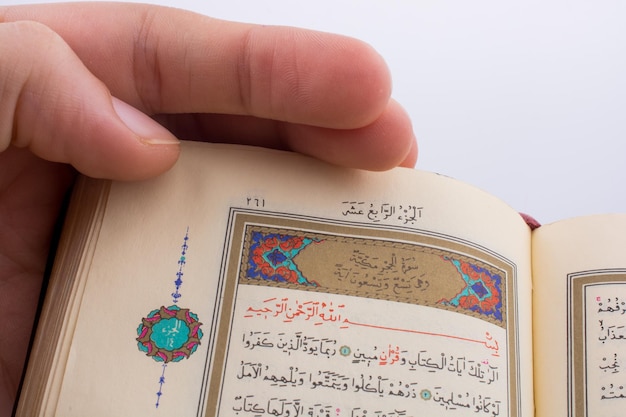 ٢٦١
اَلْجُزْءُ الرَّابِعُ عَشَرَ
سُورَةُ الْحِجْرِ مَكِّيَّةٌ
وَهِيَ تِسْعٌ وَتِسْعُونَ اٰيَةً
بِسْمِ اللّٰهِ الرَّحْمٰنِ الرَّحِيمِ
الٓرٰ تِلْكَ اٰيَاتُ الْكِتَابِ وَقُرْاٰنٍ مُبِينٍ ١ رُبَمَا يَوَدُّ الَّذِينَ كَفَرُوا
لَوْ كَانُوا مُسْلِمِينَ ٢ ذَرْهُمْ يَأْكُلُوا وَيَتَمَتَّعُوا وَيُلْهِهِمُ الْاَمَلُ
قَرْيَةٍ اِلَّا وَلَهَا كِتَابٌ
الجزء
١٤
الْعَذَابَ